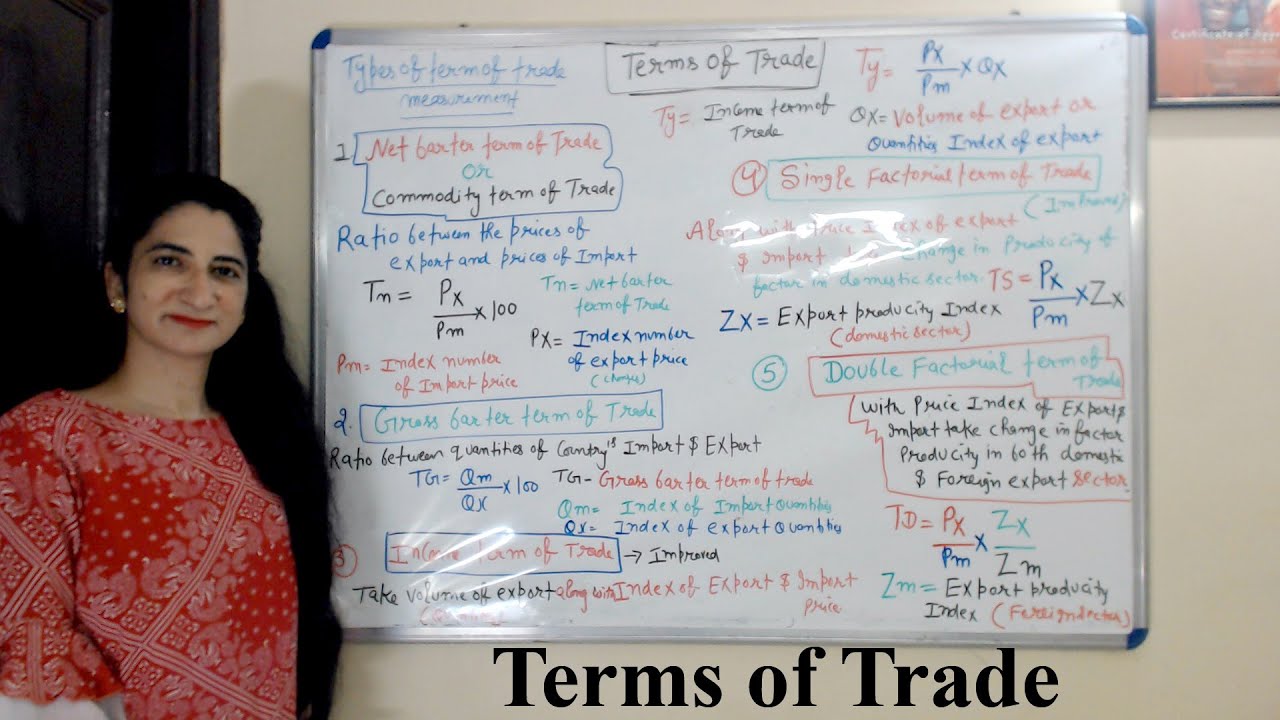 Types of term of trade
measurement
1. Net barter term of Trade
or
Commodity term of Trade
Ratio between the prices of
export and prices of Import
Tn = Px/Pm x 100
Tn = Net barter
term of Trade
Px = Index number
of export price
Pm = Index number
of Import price
2. Gross barter term of Trade
Ratio between quantities of Country's Import & Export
TG = Qm/Qx x 100
TG - Gross barter term of trade
Qm = Index of Import Quantities
Qx = Index of export Quantities
3 Income term of Trade → Improved
Take volume of export along with Index of Export & Import
price
Terms of Trade
Ty = Px/Pm x Qx
Ty = Income term of
Trade
Qx = Volume of export or
Quantities Index of export
4 Single Factorial term of Trade
(Improved)
Along with Price Index of export
& Import change in Producity of
factor in domestic sector. TS = Px/Pm x Zx
Zx = Export producity Index
(domestic sector)
5 Double Factorial term of
Trade
with Price Index of Export &
Import take change in factor
Producity in both domestic
& Foreign export Sector
TD = Px/Pm x Zx/Zm
Zm = Export producity
Index (Foreign sector)
Terms of Trade